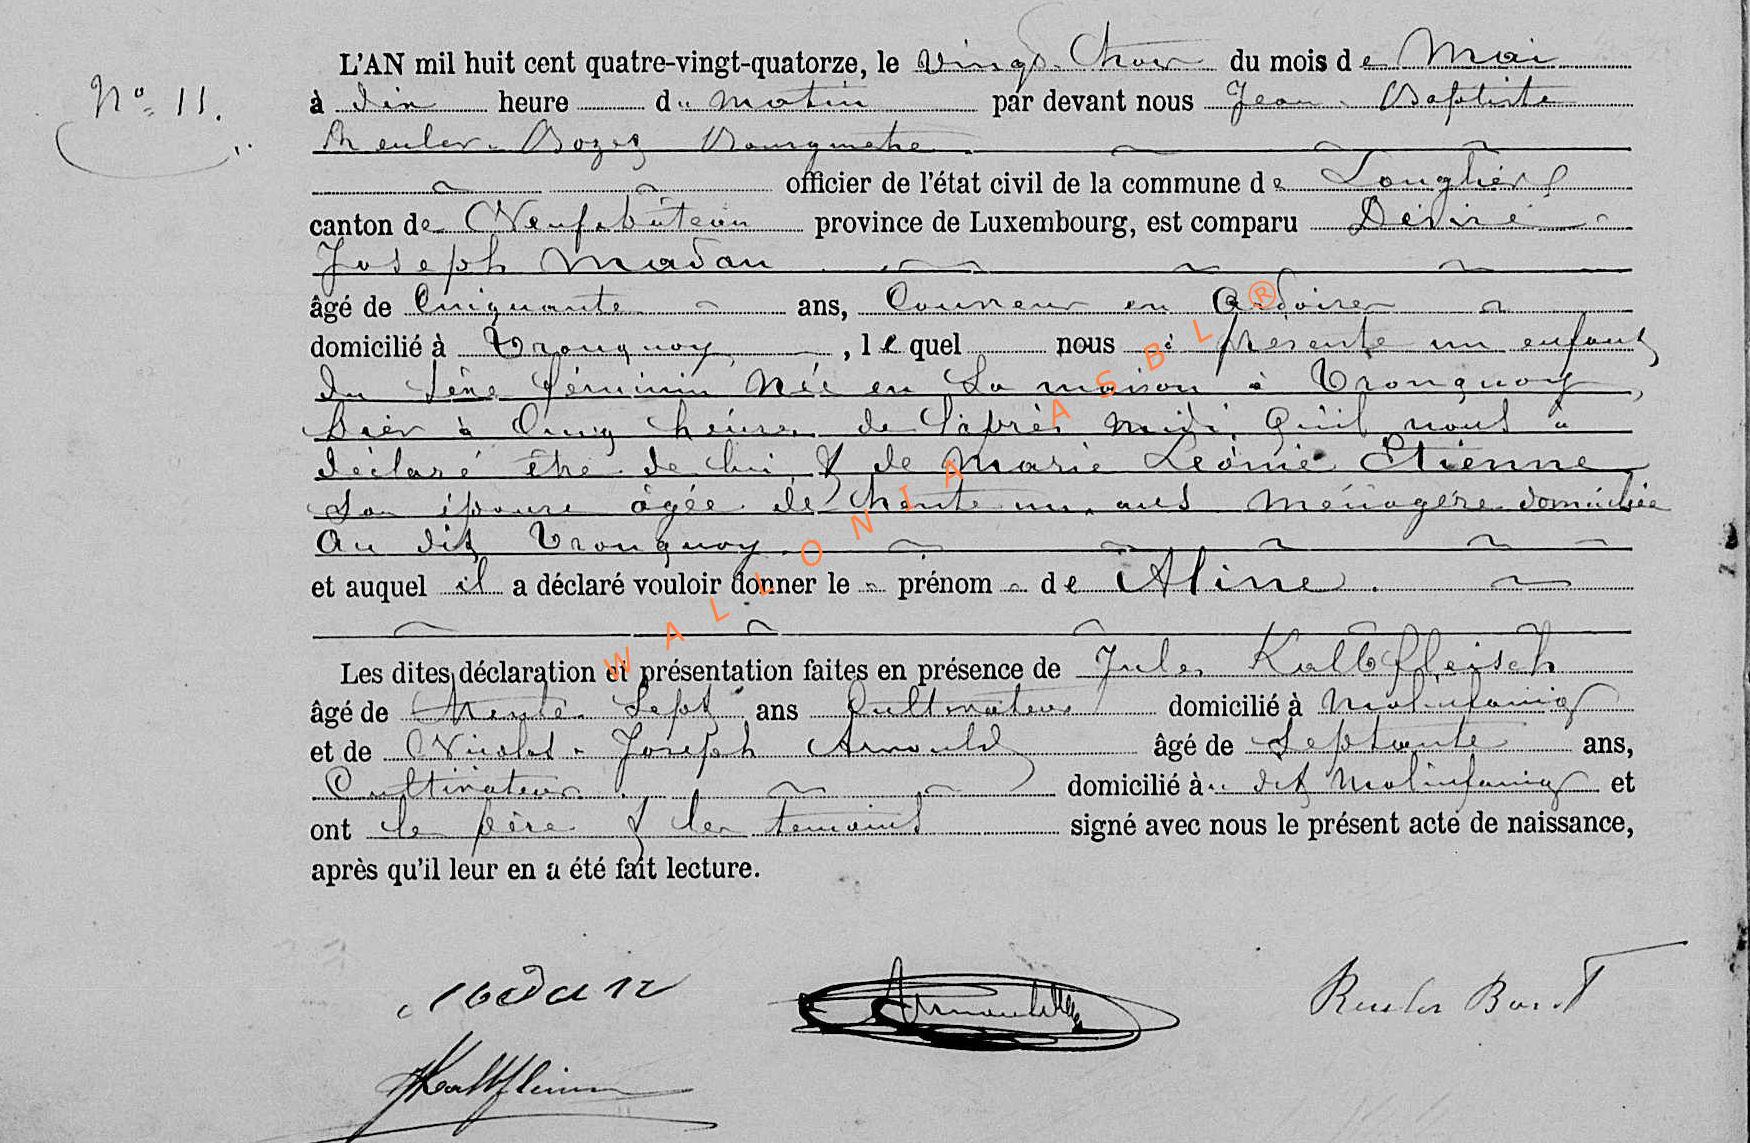 N° 11.
L'AN mil huit cent quatre-vingt-quatorze, le vingt trois du mois de Mai
à dix heure du matin par devant nous Jean Baptiste
Reuler Bozet Bourgmestre
officier de l'état civil de la commune de Longlier
canton de Neufchâteau province de Luxembourg, est comparu Désiré
Joseph Madan
âgé de Cinquante ans, Couvreur en Ardoises
domicilié à Tronquoy, lequel nous à présenté un enfant
du sexe féminin Née en sa maison à Tronquoy,
hier à Cinq heures de l'après midi Qu'il nous à
déclaré être de lui & de Marie Léonie Etienne
son épouse âgée de trente un ans ménagère domiciliée
Au dit Tronquoy
et auquel il a déclaré vouloir donner le prénom de Aline
Les dites déclaration et présentation faites en présence de Jules Kalbfleisch
âgé de trente sept ans Cultivateur domicilié à Molinfaing
et de Nicolas Joseph Arnould âgé de septante ans,
Cultivateur domicilié au dit Molinfaing et
ont le père & les témoins signé avec nous le présent acte de naissance,
après qu'il leur en a été fait lecture.
Madan Arnould Reuler Bozet
JKalbfleisch
WALLONIA ASBL ®